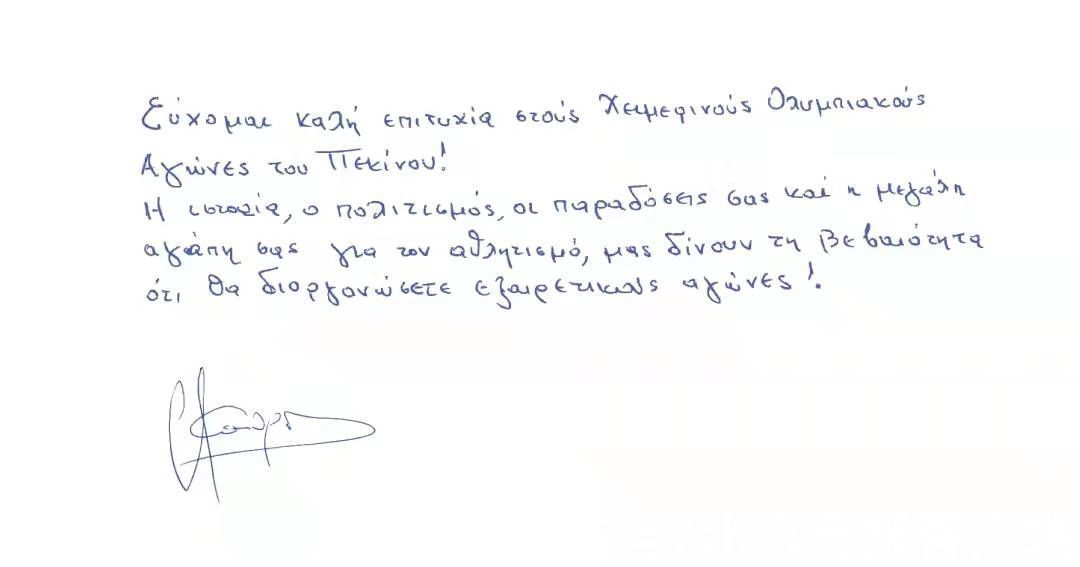 Εύχομαι καλή επιτυχία στούς Χειμερινούς Ολυμπιακούς
Αγώνες του Πεκίνου!
Η ιστορία, ο πολιτισμός, οι παραδόσεις σας και η μεγάλη
αγάπη σας για τον αθλητισμό, μας δίνουν τη βεβαιότητα
ότι θα διοργανώσετε εξαιρετικούς αγώνες!
号/北京日报客户端